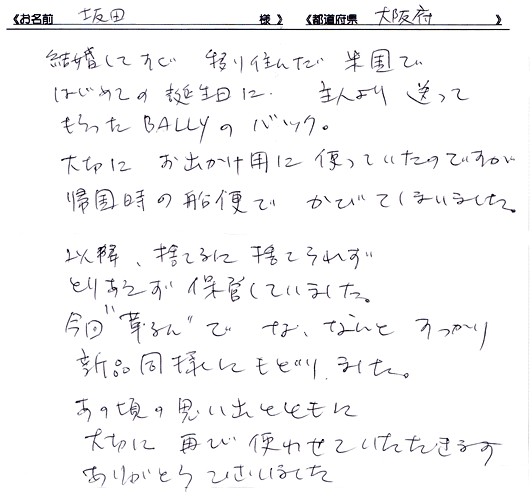 《お名前 坂田 様》 《都道府県 大阪府 》
結婚してすぐ 移り住んだ 米国で
はじめての誕生日に 主人より 送って
もらった BALLYのバック。
大切に お出かけ用に 使っていたのですが
帰国時の船便で かびてしまいました。
以降、捨てるに捨てられず
とりあえず 保管していました。
今回"革るん"で な、なんと すっかり
新品同様にもどりました。
あの頃の思い出とともに
大切に 再び使わせていただきます
ありがとうございました